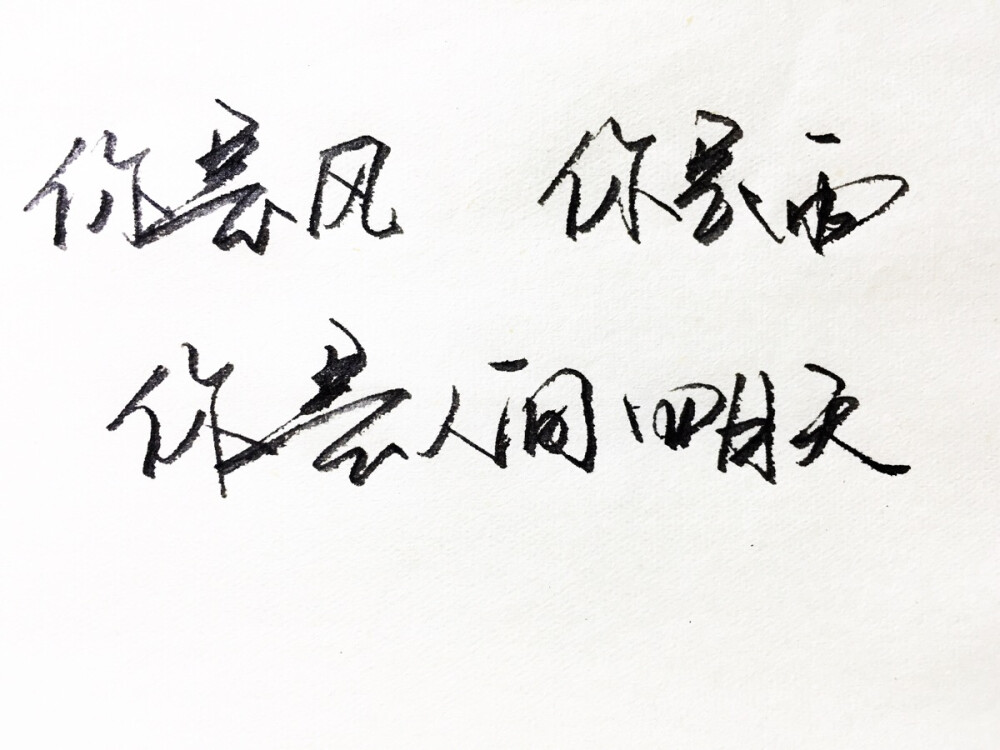 你是风 你是雨
你是人间四月天